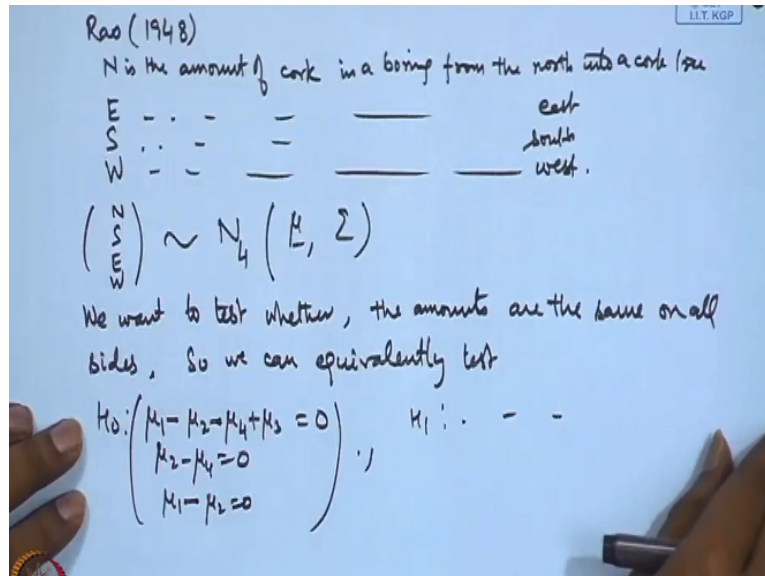 I.I.T. KGP
Rao (1948)
N is the amount of cork in a boring from the north into a cork tree
E - . - — —— east
S . . - — south
W - - — —— —— west.
( N S E W ) ~ N₄ ( μ, Σ )
We want to test whether, the amounts are the same on all
sides, So we can equivalently test
H₀: ( μ₁ - μ₂ - μ₄ + μ₃ = 0 ) ., H₁ : . - -
μ₂ - μ₄ = 0
μ₁ - μ₂ = 0